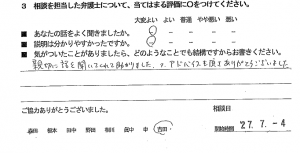 3 相談を担当した弁護士について、当てはまる評価に○をつけてください。
大変よい よい 普通 やや悪い 悪い
■ あなたの話をよく聞きましたか。
■ 説明は分かりやすかったですか。
■ 気がついたことがありましたら、どのようなことでも結構ですからお書きください。
親切に話を聞いてくれて助かりました。アドバイスも頂きありがとうございました
ご協力ありがとうございました。
相談日
27. 7. -4